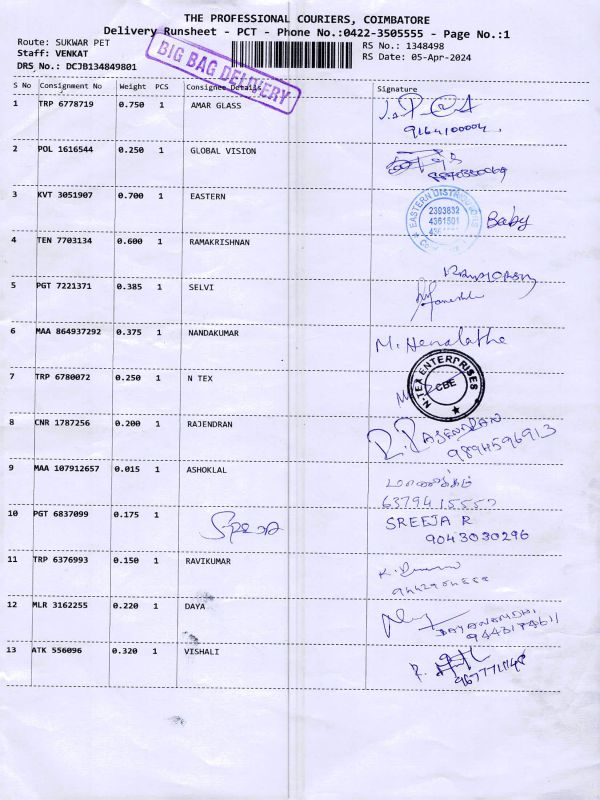 THE PROFESSIONAL COURIERS, COIMBATORE
Delivery Runsheet - PCT - Phone No.:0422-3505555 - Page No.:1
Route: SUKWAR PET
RS No.: 1348498
Staff: VENKAT
RS Date: 05-Apr-2024
DRS No.: DCJB134849801
BIG BAG DELIVERY
S No Consignment No Weight PCS Consignee Details Signature
1 TRP 6778719 0.750 1 AMAR GLASS
9164100004
2 POL 1616544 0.250 1 GLOBAL VISION
3 KVT 3051907 0.700 1 EASTERN
EASTERN DISTRIBUTORS
2393832
4361501
Baby
4 TEN 7703134 0.600 1 RAMAKRISHNAN
5 PGT 7221371 0.385 1 SELVI
6 MAA 864937292 0.375 1 NANDAKUMAR
M. Henalathe
7 TRP 6780072 0.250 1 N TEX
N-TEX ENTERPRISES
CBE
8 CNR 1787256 0.200 1 RAJENDRAN
R. RAJENDRAN
9894596913
9 MAA 107912657 0.015 1 ASHOKLAL
6379415557
10 PGT 6837099 0.175 1
SREEJA R
9043030296
11 TRP 6376993 0.150 1 RAVIKUMAR
12 MLR 3162255 0.220 1 DAYA
13 ATK 556096 0.320 1 VISHALI